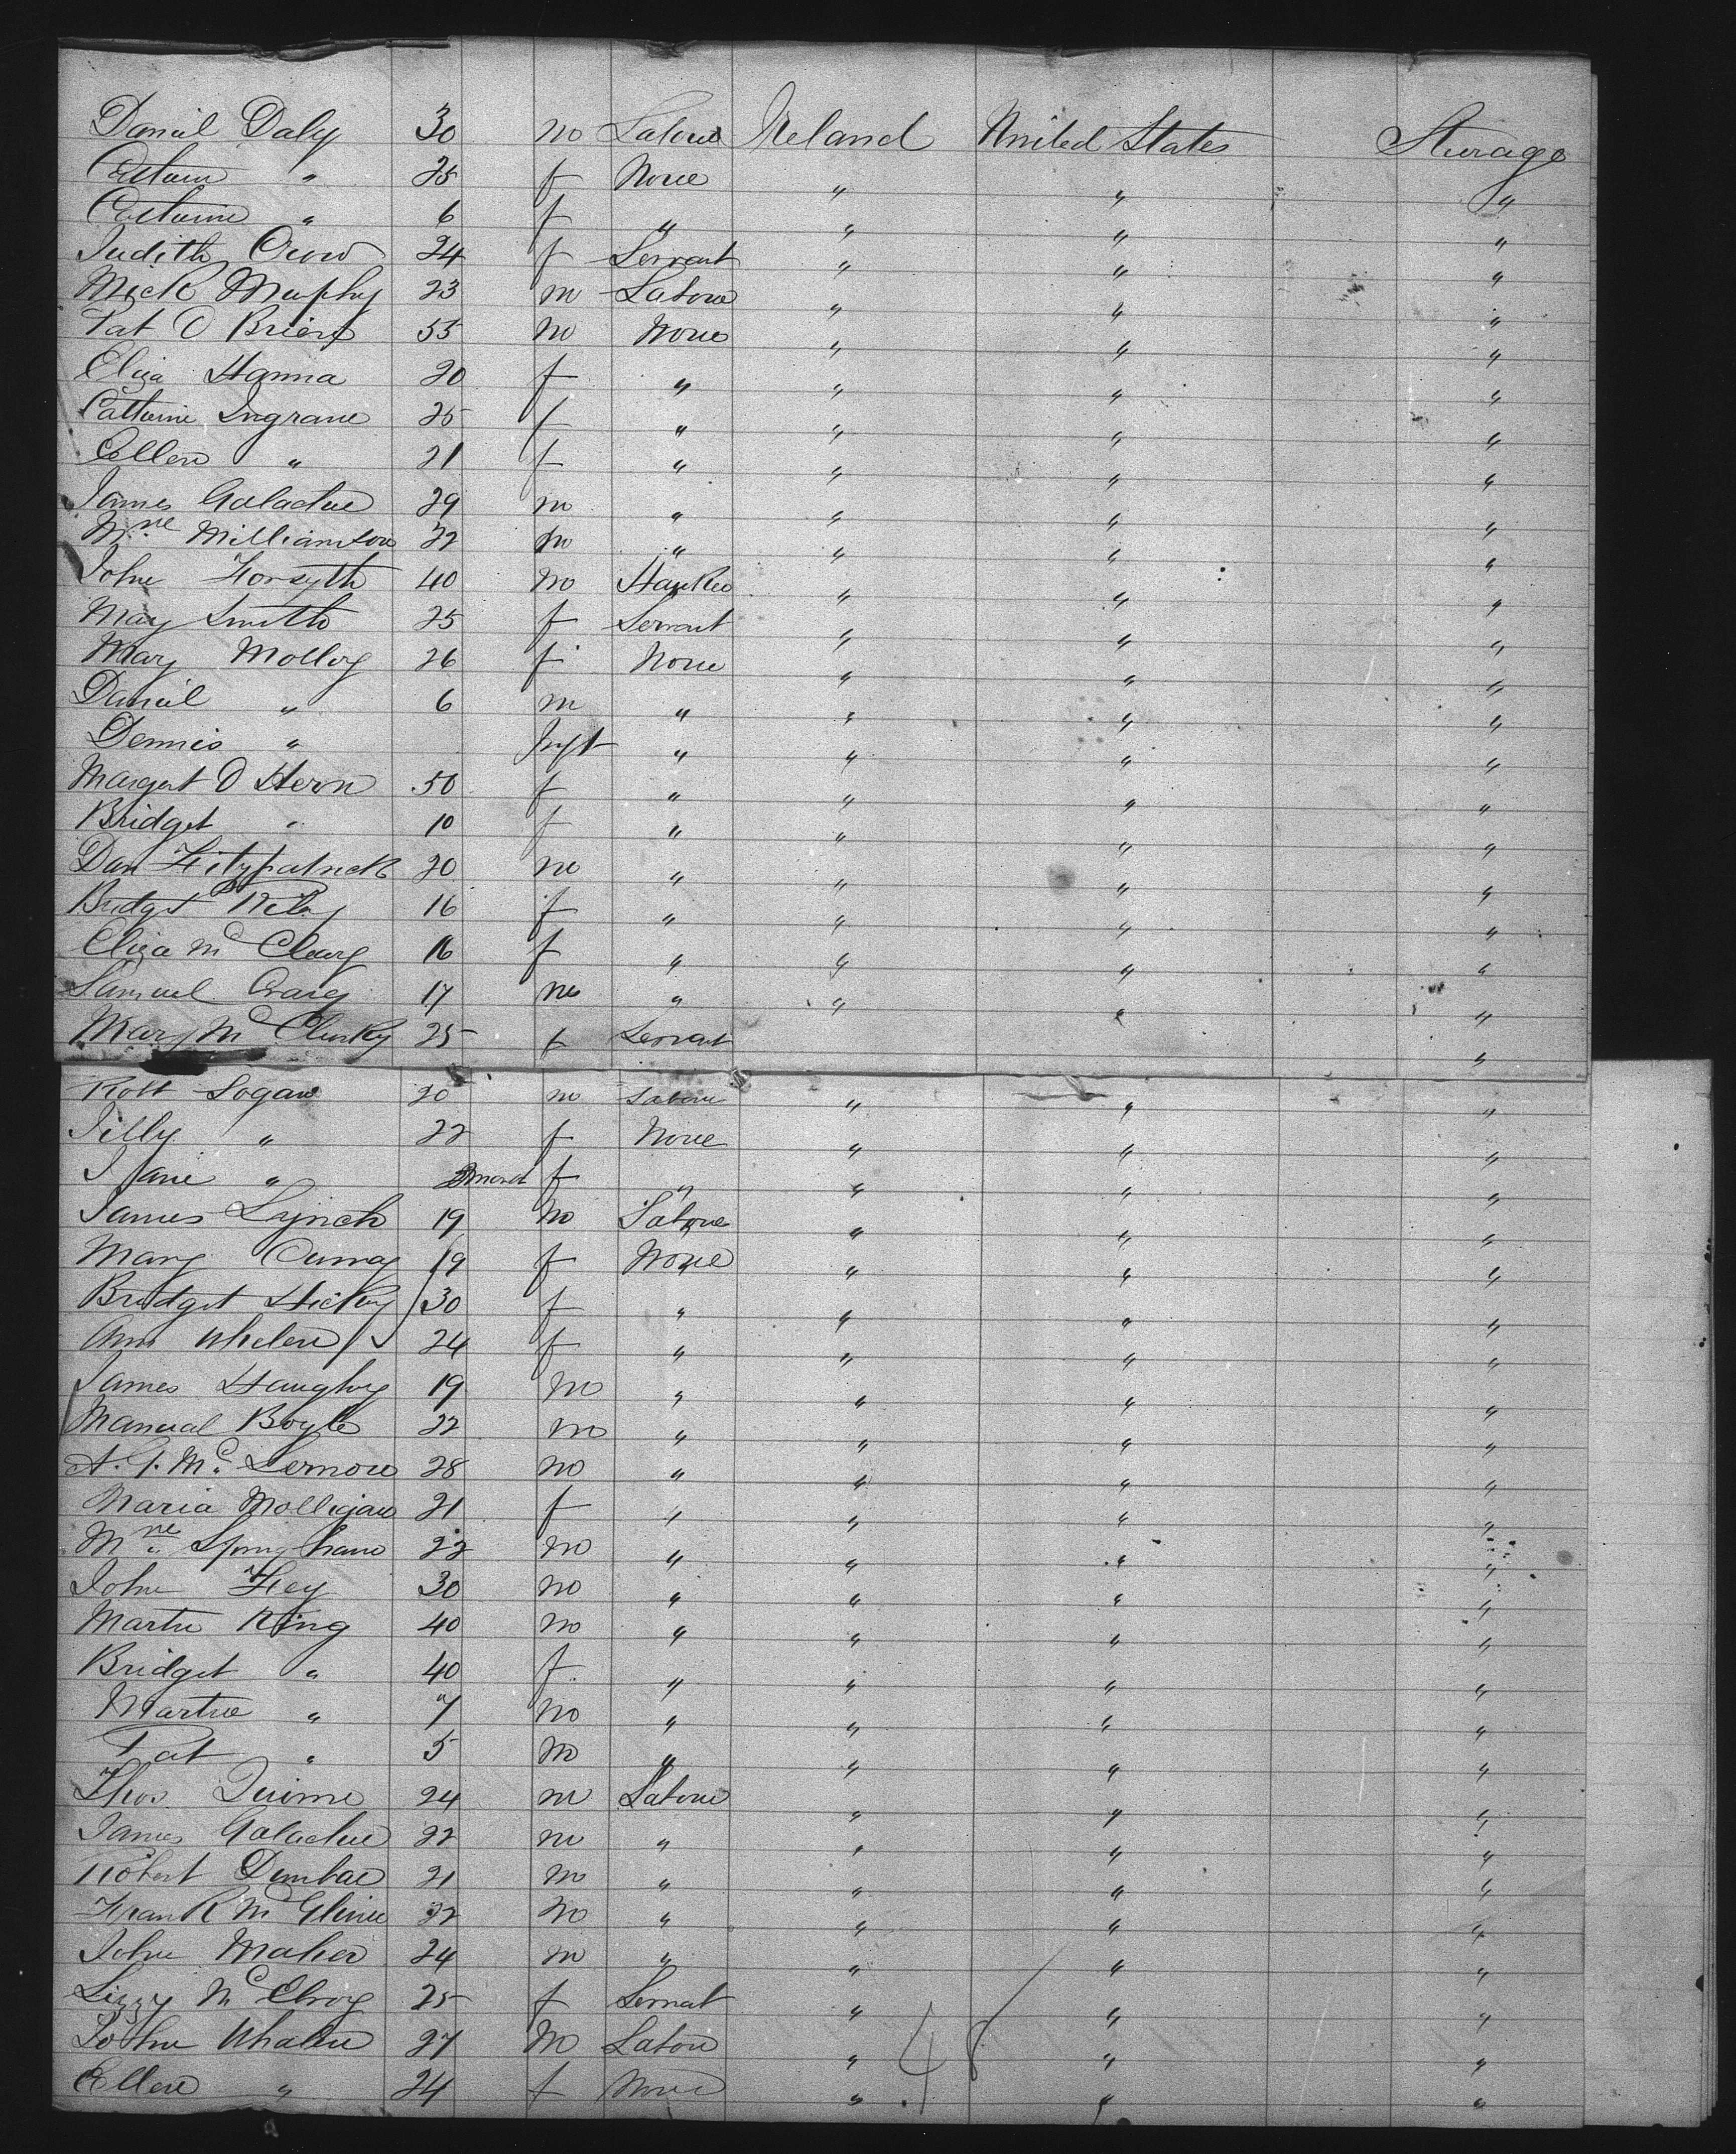 Daniel Daly 30 m Labour Ireland United States Sturage
Catherin " 25 f None " " "
Catherine " 6 f " " " "
Judith Crow 24 f Servant " " "
Mick Murphy 23 m Labour " " "
Pat O Brien 55 m None " " "
Eliza Hanna 20 f " " " "
Catherine Ingrane 25 f " " " "
Ellen " 21 f " " " "
James Galacher 29 m " " " "
Wm Williamson 22 m " " " "
John Forsyth 40 m " " "
Mary Smith 25 f Servant " " "
Mary Molloy 26 f None " " "
Daniel " 6 m " " " "
Dennis " Inft " " " "
Margert O Hern 50 f " " " "
Bridget " 10 f " " " "
Dan Fitzpatrick 20 m " " " "
Bridget Riley 16 f " " " "
Eliza Mc Cleary 16 f " " " "
Samuel Craig 17 m " " " "
Mary Mc Clusky 25 f Servant "
Robt Logan 20 m Labour " " "
Tilly " 22 f None " " "
Jane " f " " " "
James Lynch 19 m Labour " " "
Mary 19 f None " " "
Bridget Hickey 30 f " " " "
Ann Whelen 24 f " " " "
James Haughey 19 m " " " "
Manual Boyle 22 m " " " "
A. J. Mc Lernon 28 m " " " "
Maria Molligan 21 f " " " "
Wm 22 m " " " "
John Fey 30 m " " " "
Martin King 40 m " " " "
Bridget " 40 f " " " "
Martin " 7 m " " " "
Pat " 5 m " " " "
Thos. Quinne 24 m Labour " " "
James Galacher 22 m " " " "
Robert Dunbar 21 m " " " "
Frank Mc Glinn 22 m " " " "
John Maher 24 m " " " "
Lizzy Mc Elroy 25 f Servant " " "
John Whalen 27 m Labour " " "
Ellen " 24 f None " 48 " "